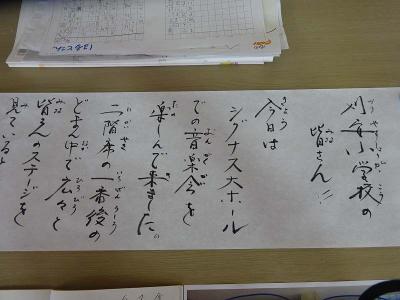 刈安小学校の
皆さん!!
今日は
シグナス大ホール
での音楽会を
楽しんで来ました。
二階席の一番後の
どまん中で広々と
皆さんのステージを
見ていると